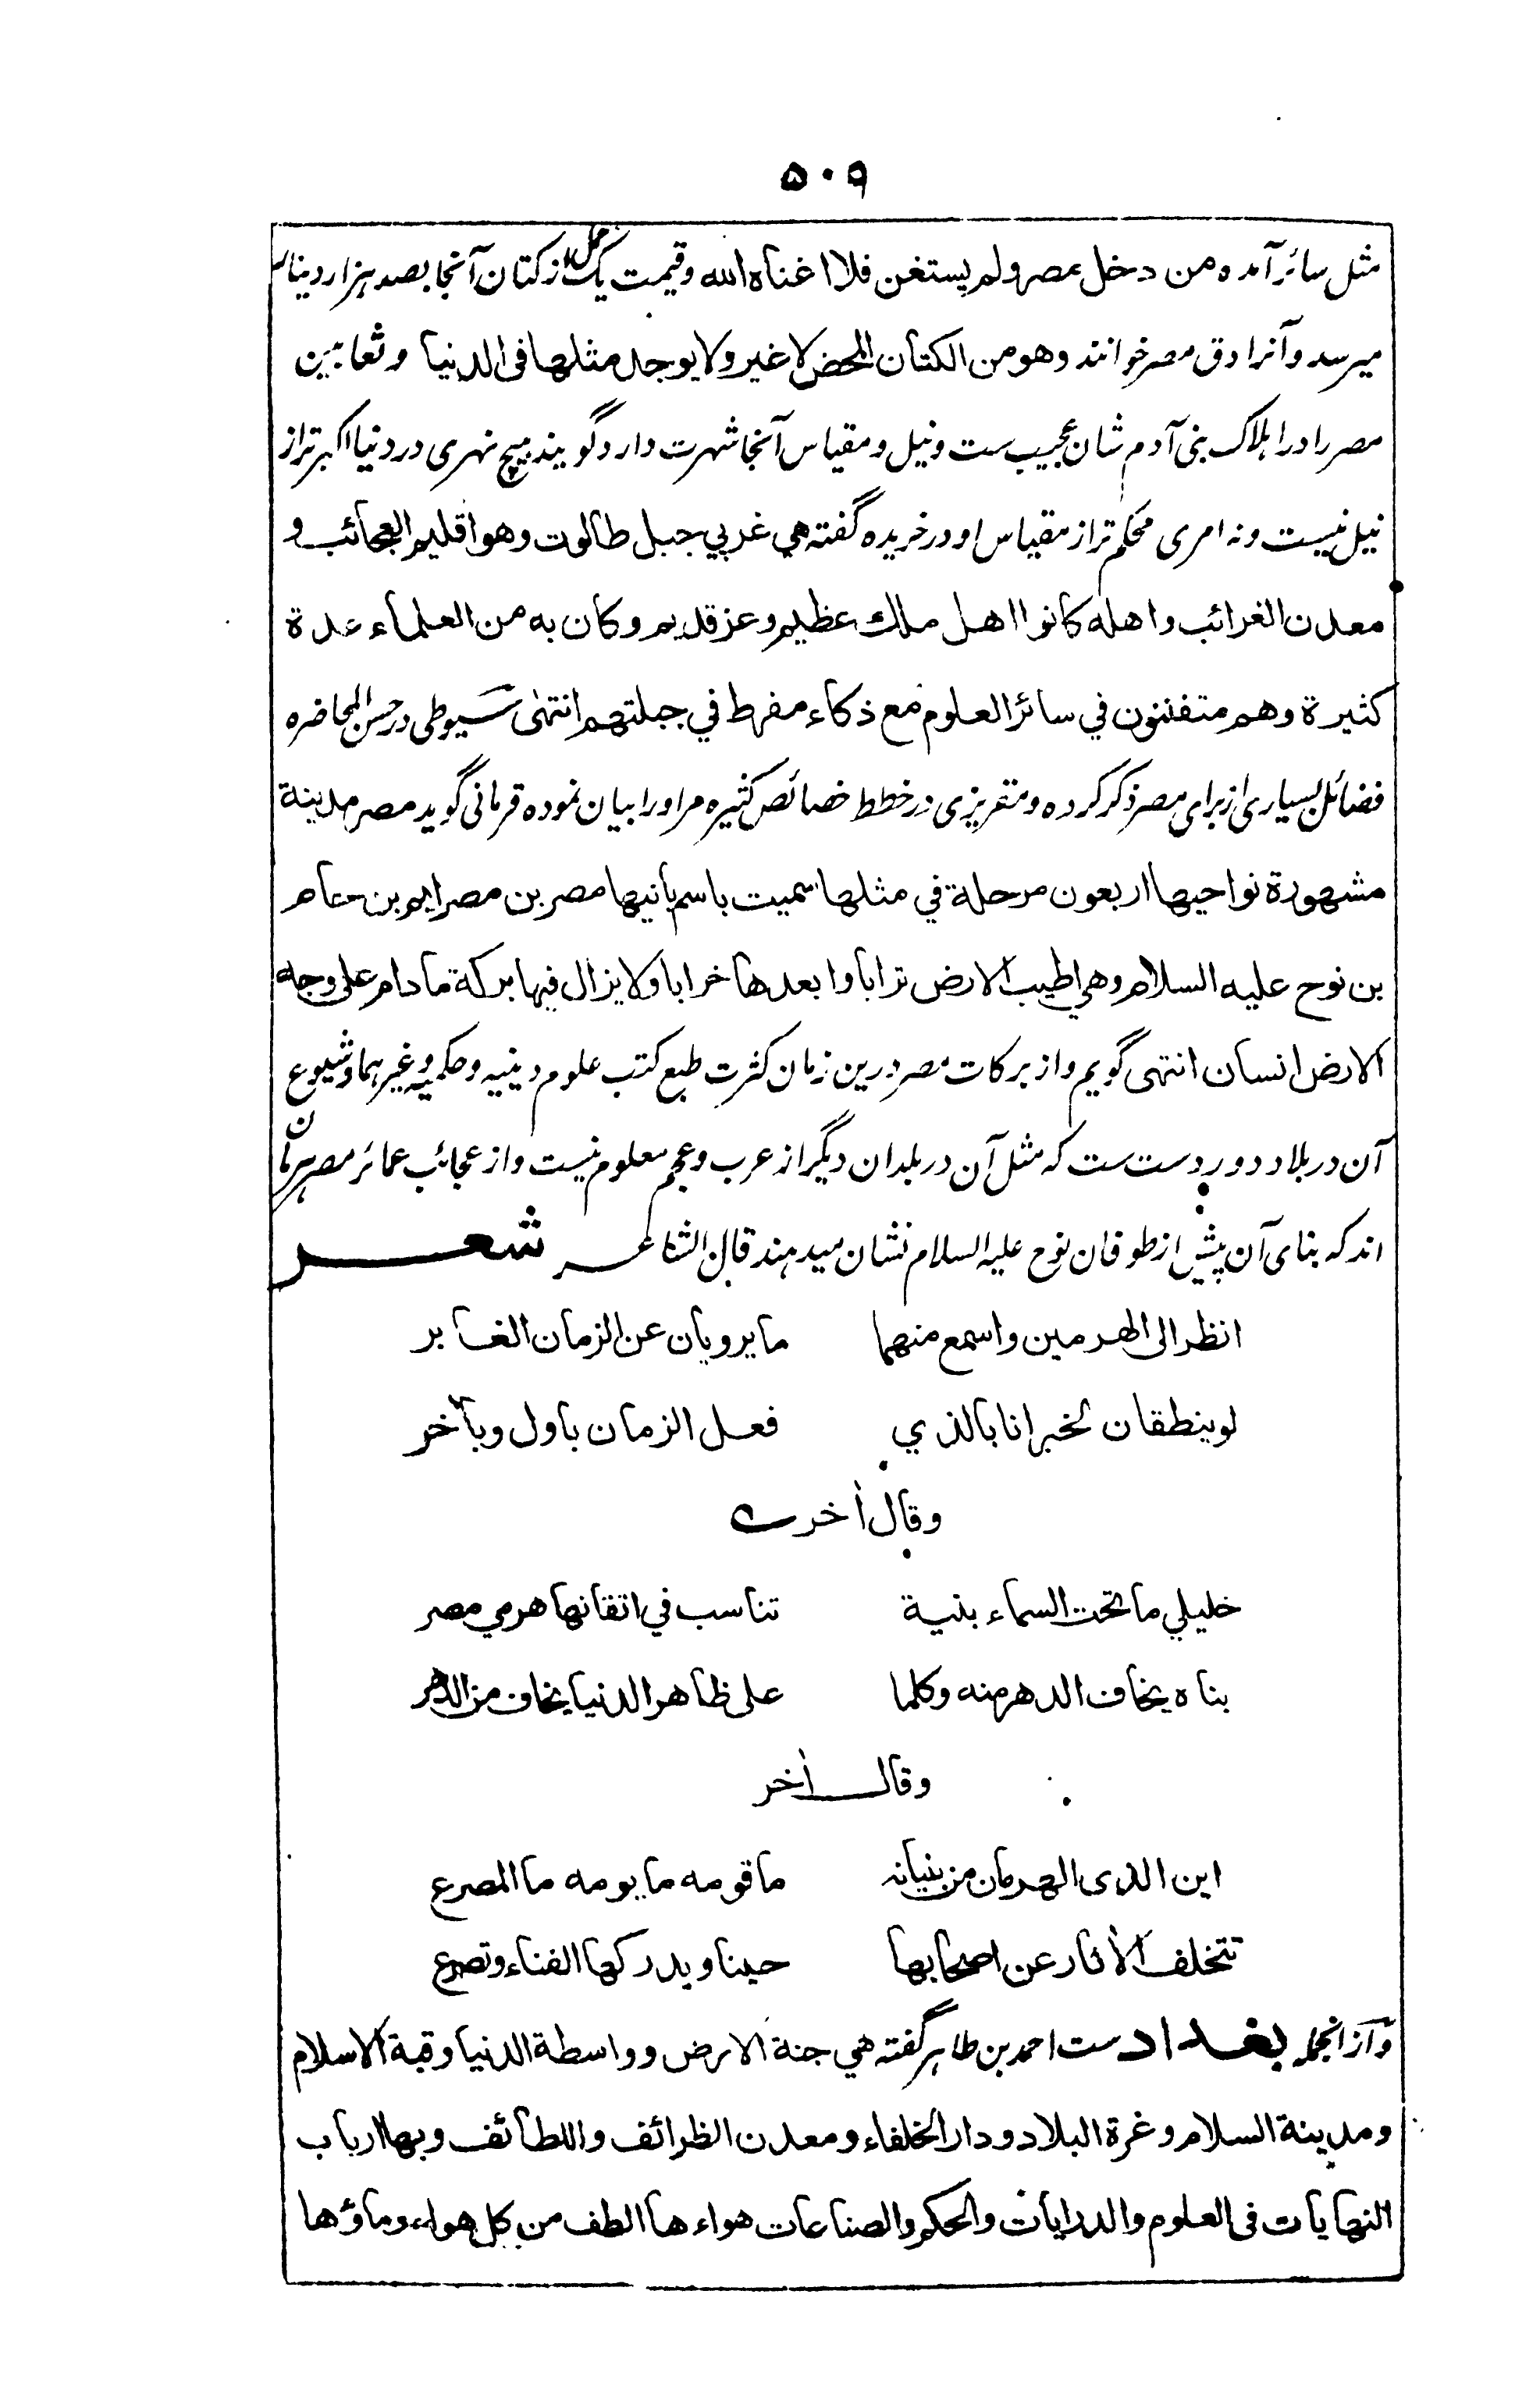 ۵۰۹
مثل سائر آمده من دخل مصر ولم يستغن فلا اغناه الله وقیمت یک حمل از کتان آنجا بصد هزار دینار
میرسد وآنرا دق مصر خوانند وهو من الكتان المحض لا غير ولا يوجد مثلها فى الدنيا وثعابین
مصر را در اہلاک بنی آدم شان عجیب ست ونیل ومقیاس آنجا شہرت دارد گویند ہیچ نہری در دنیا اکبر تر از
نیل نیست ونہ امری محکم تر از مقیاس او در خریدہ گفتہ هي غربي جبل طالوت وهو اقليم العجائب و
معدن الغرائب واهله كانوا اهل ملك عظيم وعز قديم وكان به من العلماء عدة
كثيرة وهم متفننون في سائر العلوم مع ذكاء مفرط في جبلتهم انتهى سیوطی در حسن المحاضره
فضائل بسیاری از برای مصر ذکر کرده ومقریزی در خطط خصائص کثیره مر او را بیان نموده قرمانی گوید مصر مدينة
مشهورة نواحيها اربعون مرحلة في مثلها سميت باسم بانيها مصر بن مصرايم بن حام
بن نوح عليه السلام وهي اطيب الارض ترابا وابعدها خرابا ولا يزال فيها بركة ما دام على وجه
الارض انسان انتهى گویم واز برکات مصر درین زمان کثرت طبع کتب علوم دینیه وحکمیه وغیرہما وشیوع
آن در بلاد دور دست ست کہ مثل آن در بلدان دیگر از عرب وعجم معلوم نیست واز عجائب عمائر مصر ہرمان
اند کہ بنای آن پیش از طوفان نوح علیه السلام نشان میدہند قال الشاعر شعر
انظر الى الهرمين واسمع منهما ما يرويان عن الزمان الغابر
لو ينطقان لخبرانا بالذي فعل الزمان باول وبآخر
وقال آخر
خليلي ما تحت السماء بنية تناسب في اتقانها هرمي مصر
بناه يخاف الدهر منه وكلما على ظاهر الدنيا يخاف من الدهر
وقال آخر
اين الذى الهرمان من بنيانه ما قومه ما يومه ما المصرع
تتخلف الآثار عن اصحابها حينا ويدركها الفناء وتصرع
وازانجملہ بغداد ست احمد بن طاہر گفتہ هي جنة الارض وواسطة الدنيا وقبة الاسلام
ومدينة السلام وغرة البلاد ودار الخلفاء ومعدن الظرائف واللطائف وبها ارباب
النهايات فى العلوم والدرايات والحكم والصناعات هواءها الطف من كل هواء وماؤها